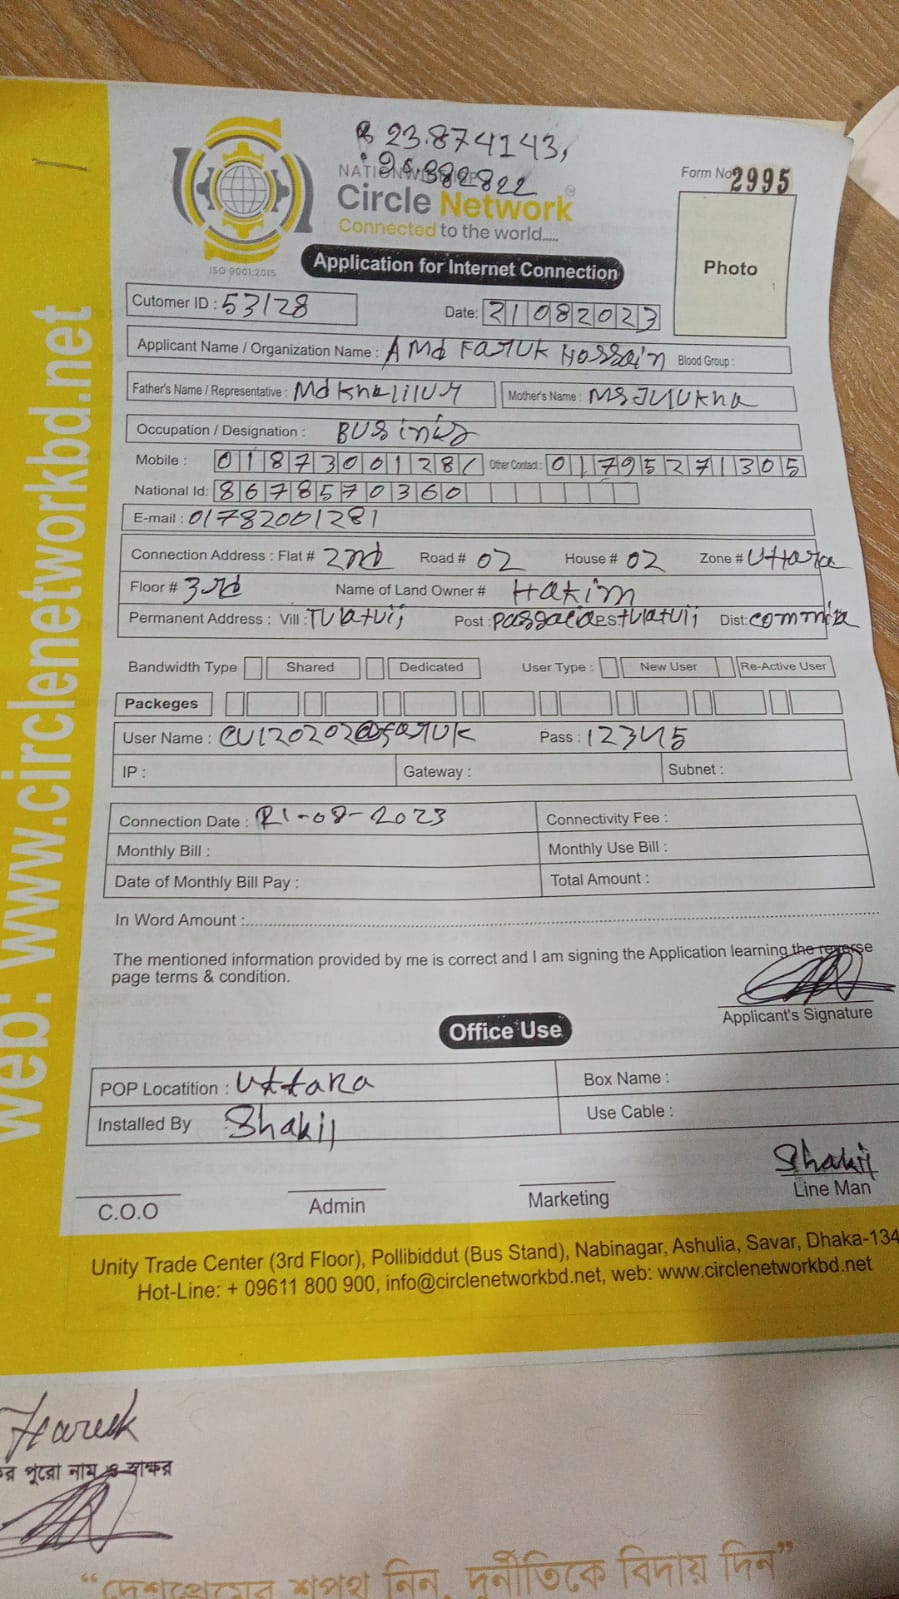 23.874143,
NATIONWIDE ISP
Circle Network
Connected to the world.....
ISO 9001:2015
Form No 2995
Photo
Application for Internet Connection
Cutomer ID : 53128 Date: 21082023
Applicant Name / Organization Name : A Md Faruk Hossain Blood Group :
Father's Name / Representative : Md Khalilur Mother's Name :
Occupation / Designation : Businis
Mobile : Other Contact : 01795271305
National Id: 8678570360
E-mail : 01782001281
Connection Address : Flat # 2nd Road # 02 House # 02 Zone # Uttara
Floor # 3rd Name of Land Owner # Hakim
Permanent Address : Vill : Post : Dist:
Bandwidth Type Shared Dedicated User Type : New User Re-Active User
Packeges
User Name : Pass : 12345
IP : Gateway : Subnet :
Connection Date : 21-08-2023 Connectivity Fee :
Monthly Bill : Monthly Use Bill :
Date of Monthly Bill Pay : Total Amount :
In Word Amount :
The mentioned information provided by me is correct and I am signing the Application learning the reverse
page terms & condition.
Applicant's Signature
Office Use
POP Locatition : Uttara Box Name :
Installed By Shakil Use Cable :
Shakil
C.O.O Admin Marketing Line Man
Unity Trade Center (3rd Floor), Pollibiddut (Bus Stand), Nabinagar, Ashulia, Savar, Dhaka-134
Hot-Line: + 09611 800 900, info@circlenetworkbd.net, web: www.circlenetworkbd.net
web: www.circlenetworkbd.net
Faruk
পুরো নাম ও স্বাক্ষর
“দেশপ্রেমের শপথ নিন, দুর্নীতিকে বিদায় দিন”